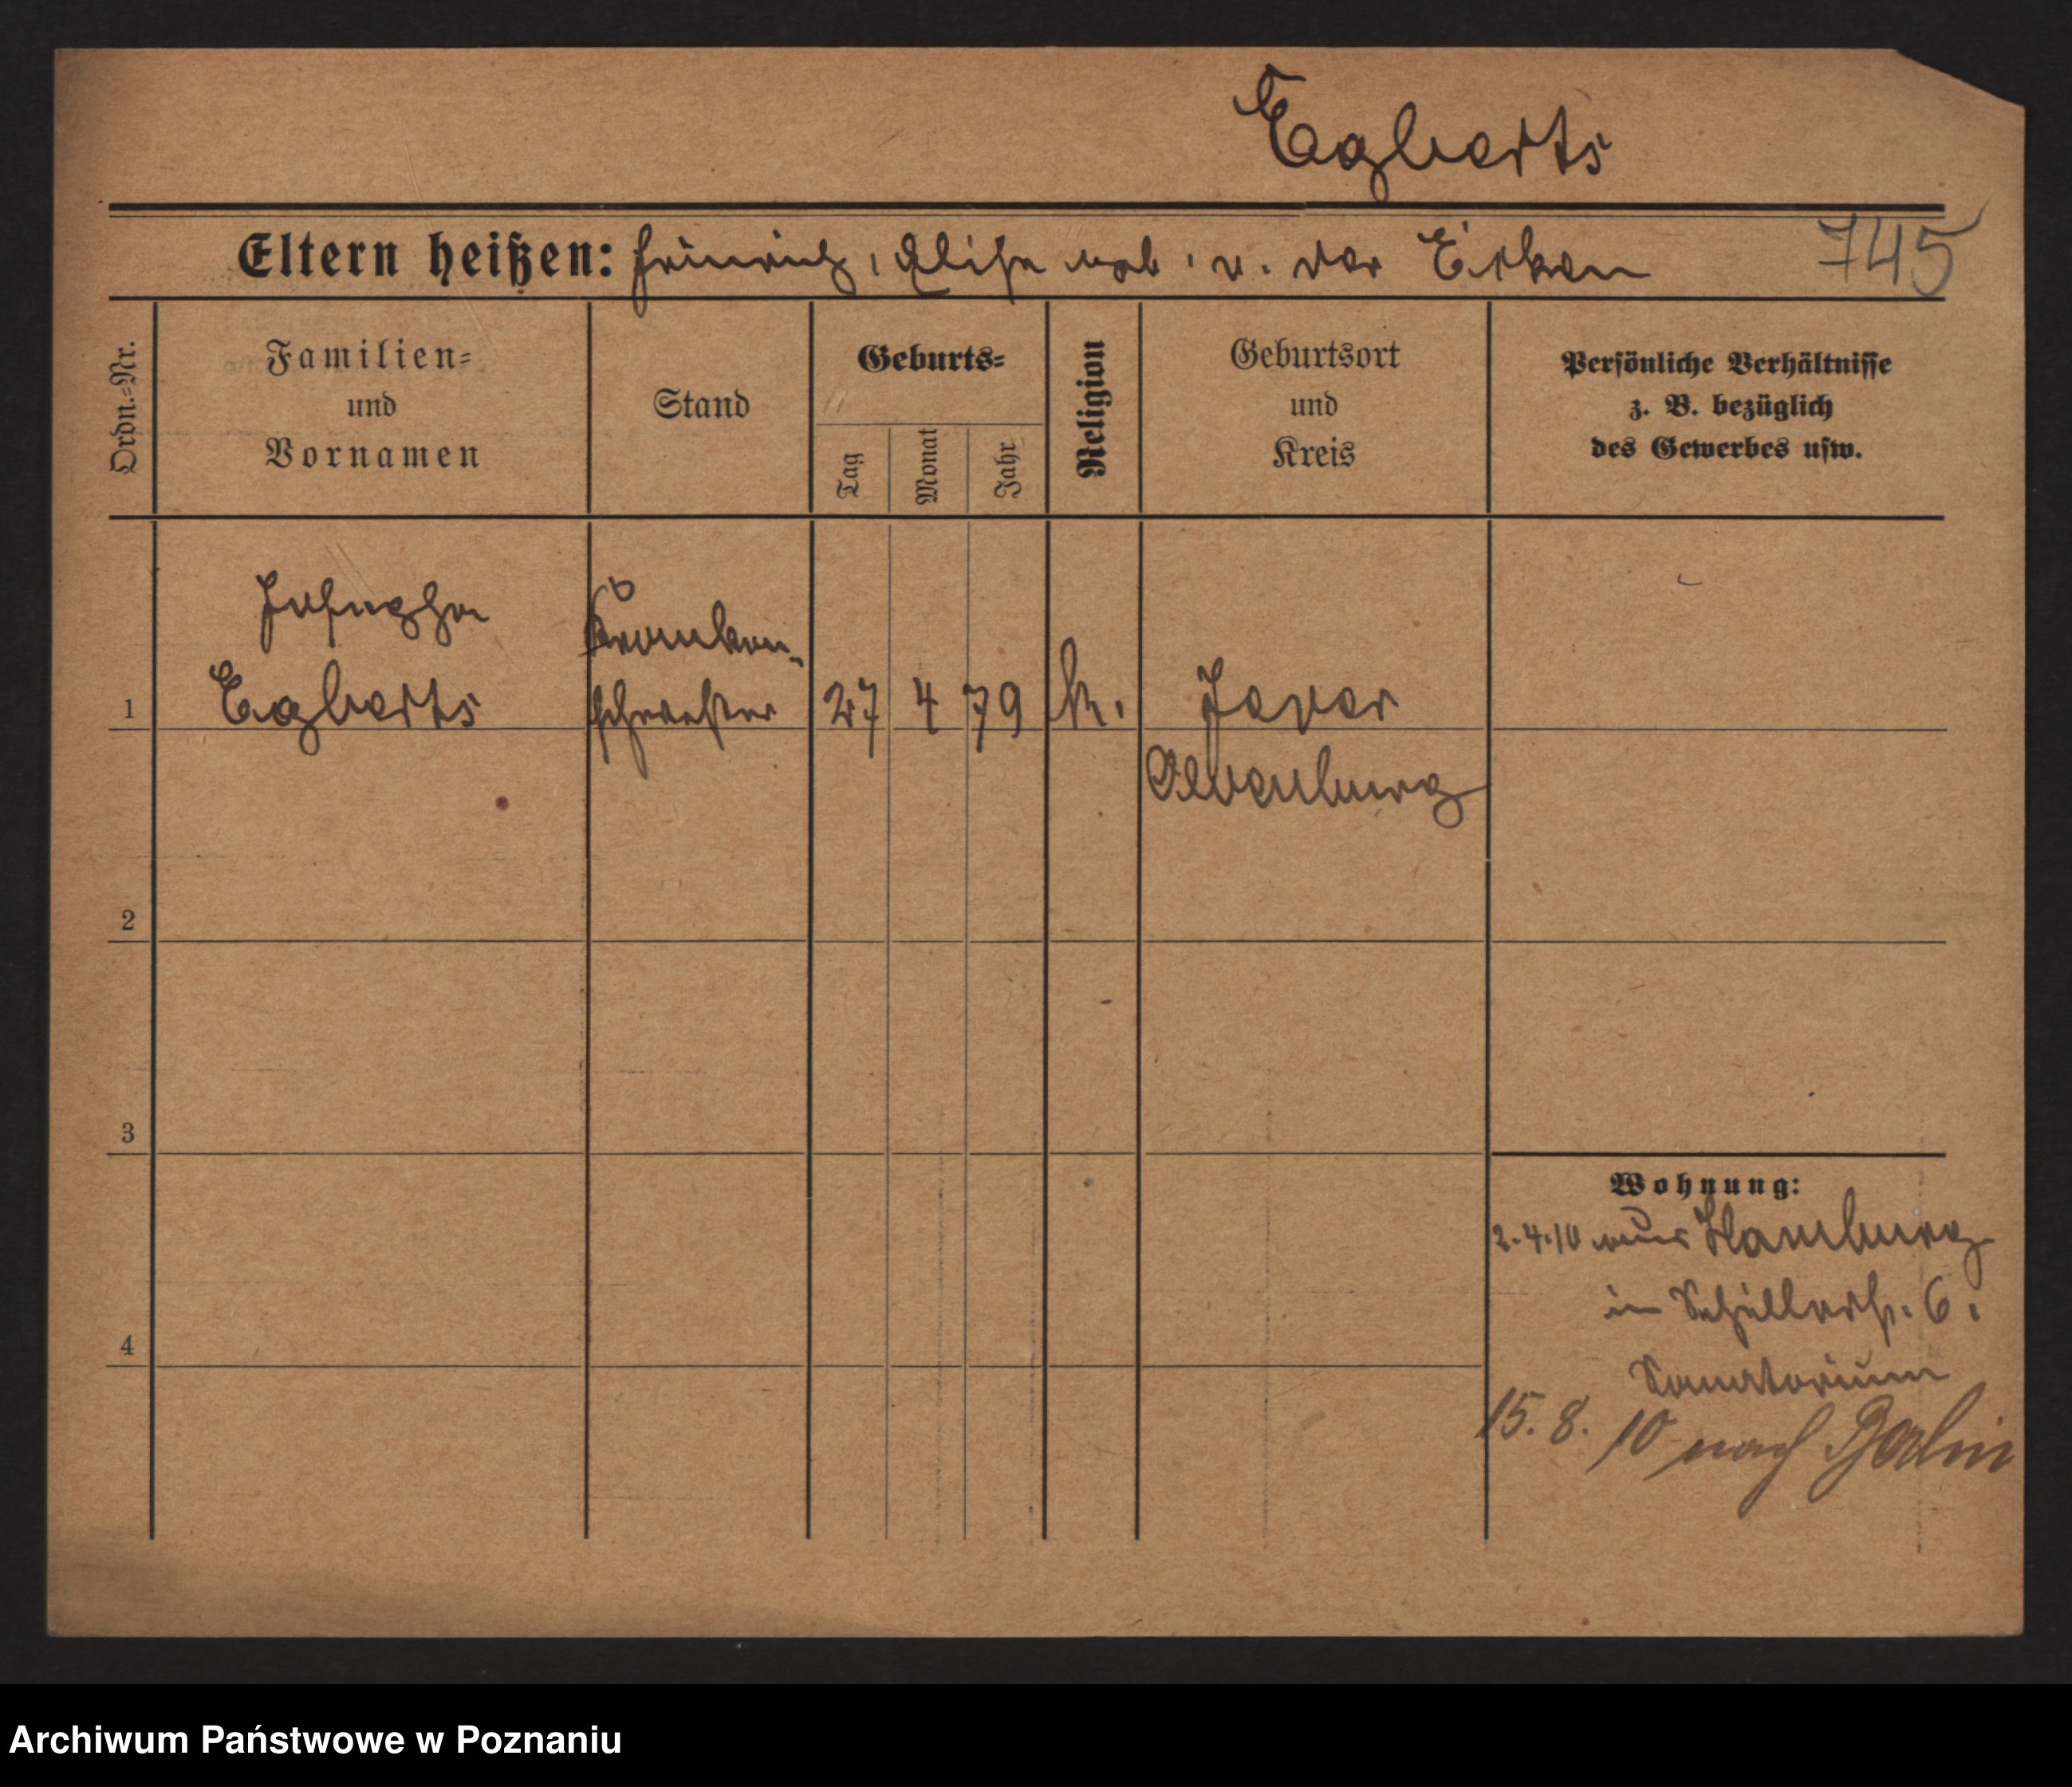 Egberts
Eltern heißen: Heinrich, Elise geb. v. der Ecken
745
Ordn.=Nr.
Familien=
und
Vornamen
Stand
Geburts=
Tag
Monat
Jahr
Religion
Geburtsort
und
Kreis
Persönliche Verhältnisse
z. B. bezüglich
des Gewerbes usw.
Josepha Kranken-
1 Egberts schwester 27 4 79 k. Jever
Oldenburg
2
3
Wohnung:
2.4.10 aus Hamburg
in Schillerstr. 6.
4
Sanatorium
15. 8. 10 nach Berlin
Archiwum Państwowe w Poznaniu